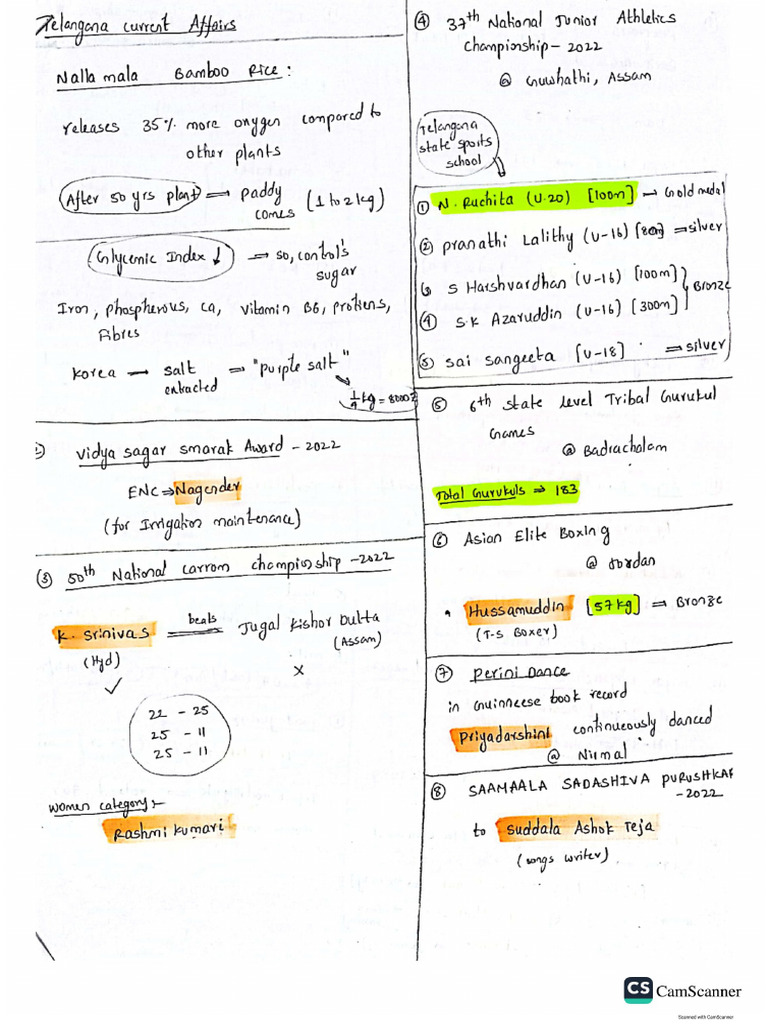 Telangana current Affairs
Nallamala Bamboo Rice :
releases 35% more oxygen compared to
other plants
After 50 yrs plant ⇒ paddy comes (1 to 2 kg)
Glycemic Index ↓ → so, control's
sugar
Iron, phospherous, ca, vitamin B6, protiens,
Fibres
Korea → salt extracted ⇒ "purple salt"
1/4 kg = 8000
vidya sagar smarak Award - 2022
ENC ⇒ Nagender
(for Irrigation maintenance)
③ 50th National carrom championship - 2022
K. Srinivas beats Jugal Kishor Dutta
(Hyd) (Assam)
✓ x
22 - 25
25 - 11
25 - 11
women category :-
Rashmi Kumari
④ 37th National Junior Athletics
Championship - 2022
@ Guwhathi, Assam
Telangana
state sports
school
① N. Ruchita (U-20) [100m] → Gold medal
② Pranathi Lalithy (U-16) ⇒ silver
S Harshvardhan (U-16) [100m]
④ S.K Azaruddin (U-16) [300m] } Bronze
⑤ sai sangeeta [U-18] ⇒ silver
⑤ 6th state level Tribal Gurukul
Games
@ Badrachalam
Total Gurukuls ⇒ 183
⑥ Asian Elite Boxing
@ Jordan
• Hussamuddin [57 kg] ⇒ Bronze
(T-S Boxer)
⑦ perini Dance
in Guinneese book record
Priyadarshini continueously danced
@ Nirmal
⑧ SAAMAALA SADASHIVA PURUSHKAR
- 2022
to Suddala Ashok Teja
(songs writer)
CS CamScanner
Scanned with CamScanner